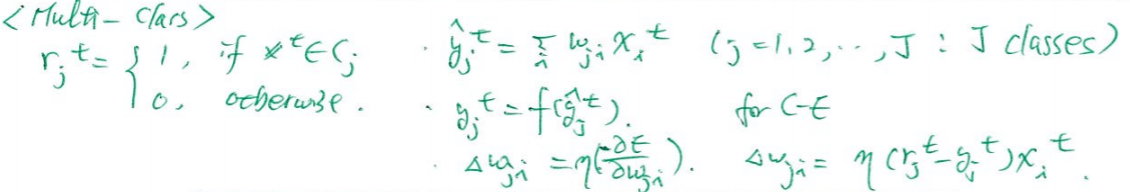 <Multi-Class>
r_j^t = { 1, if x^t ∈ C_j
0, otherwise.
· ŷ_j^t = Σ_i w_{ji} x_i^t (j = 1, 2, ··, J : J classes)
· y_j^t = f(ŷ_j^t). for C-E
· Δw_{ji} = η(-∂E/∂w_{ji}). Δw_{ji} = η(r_j^t - y_j^t)x_i^t.